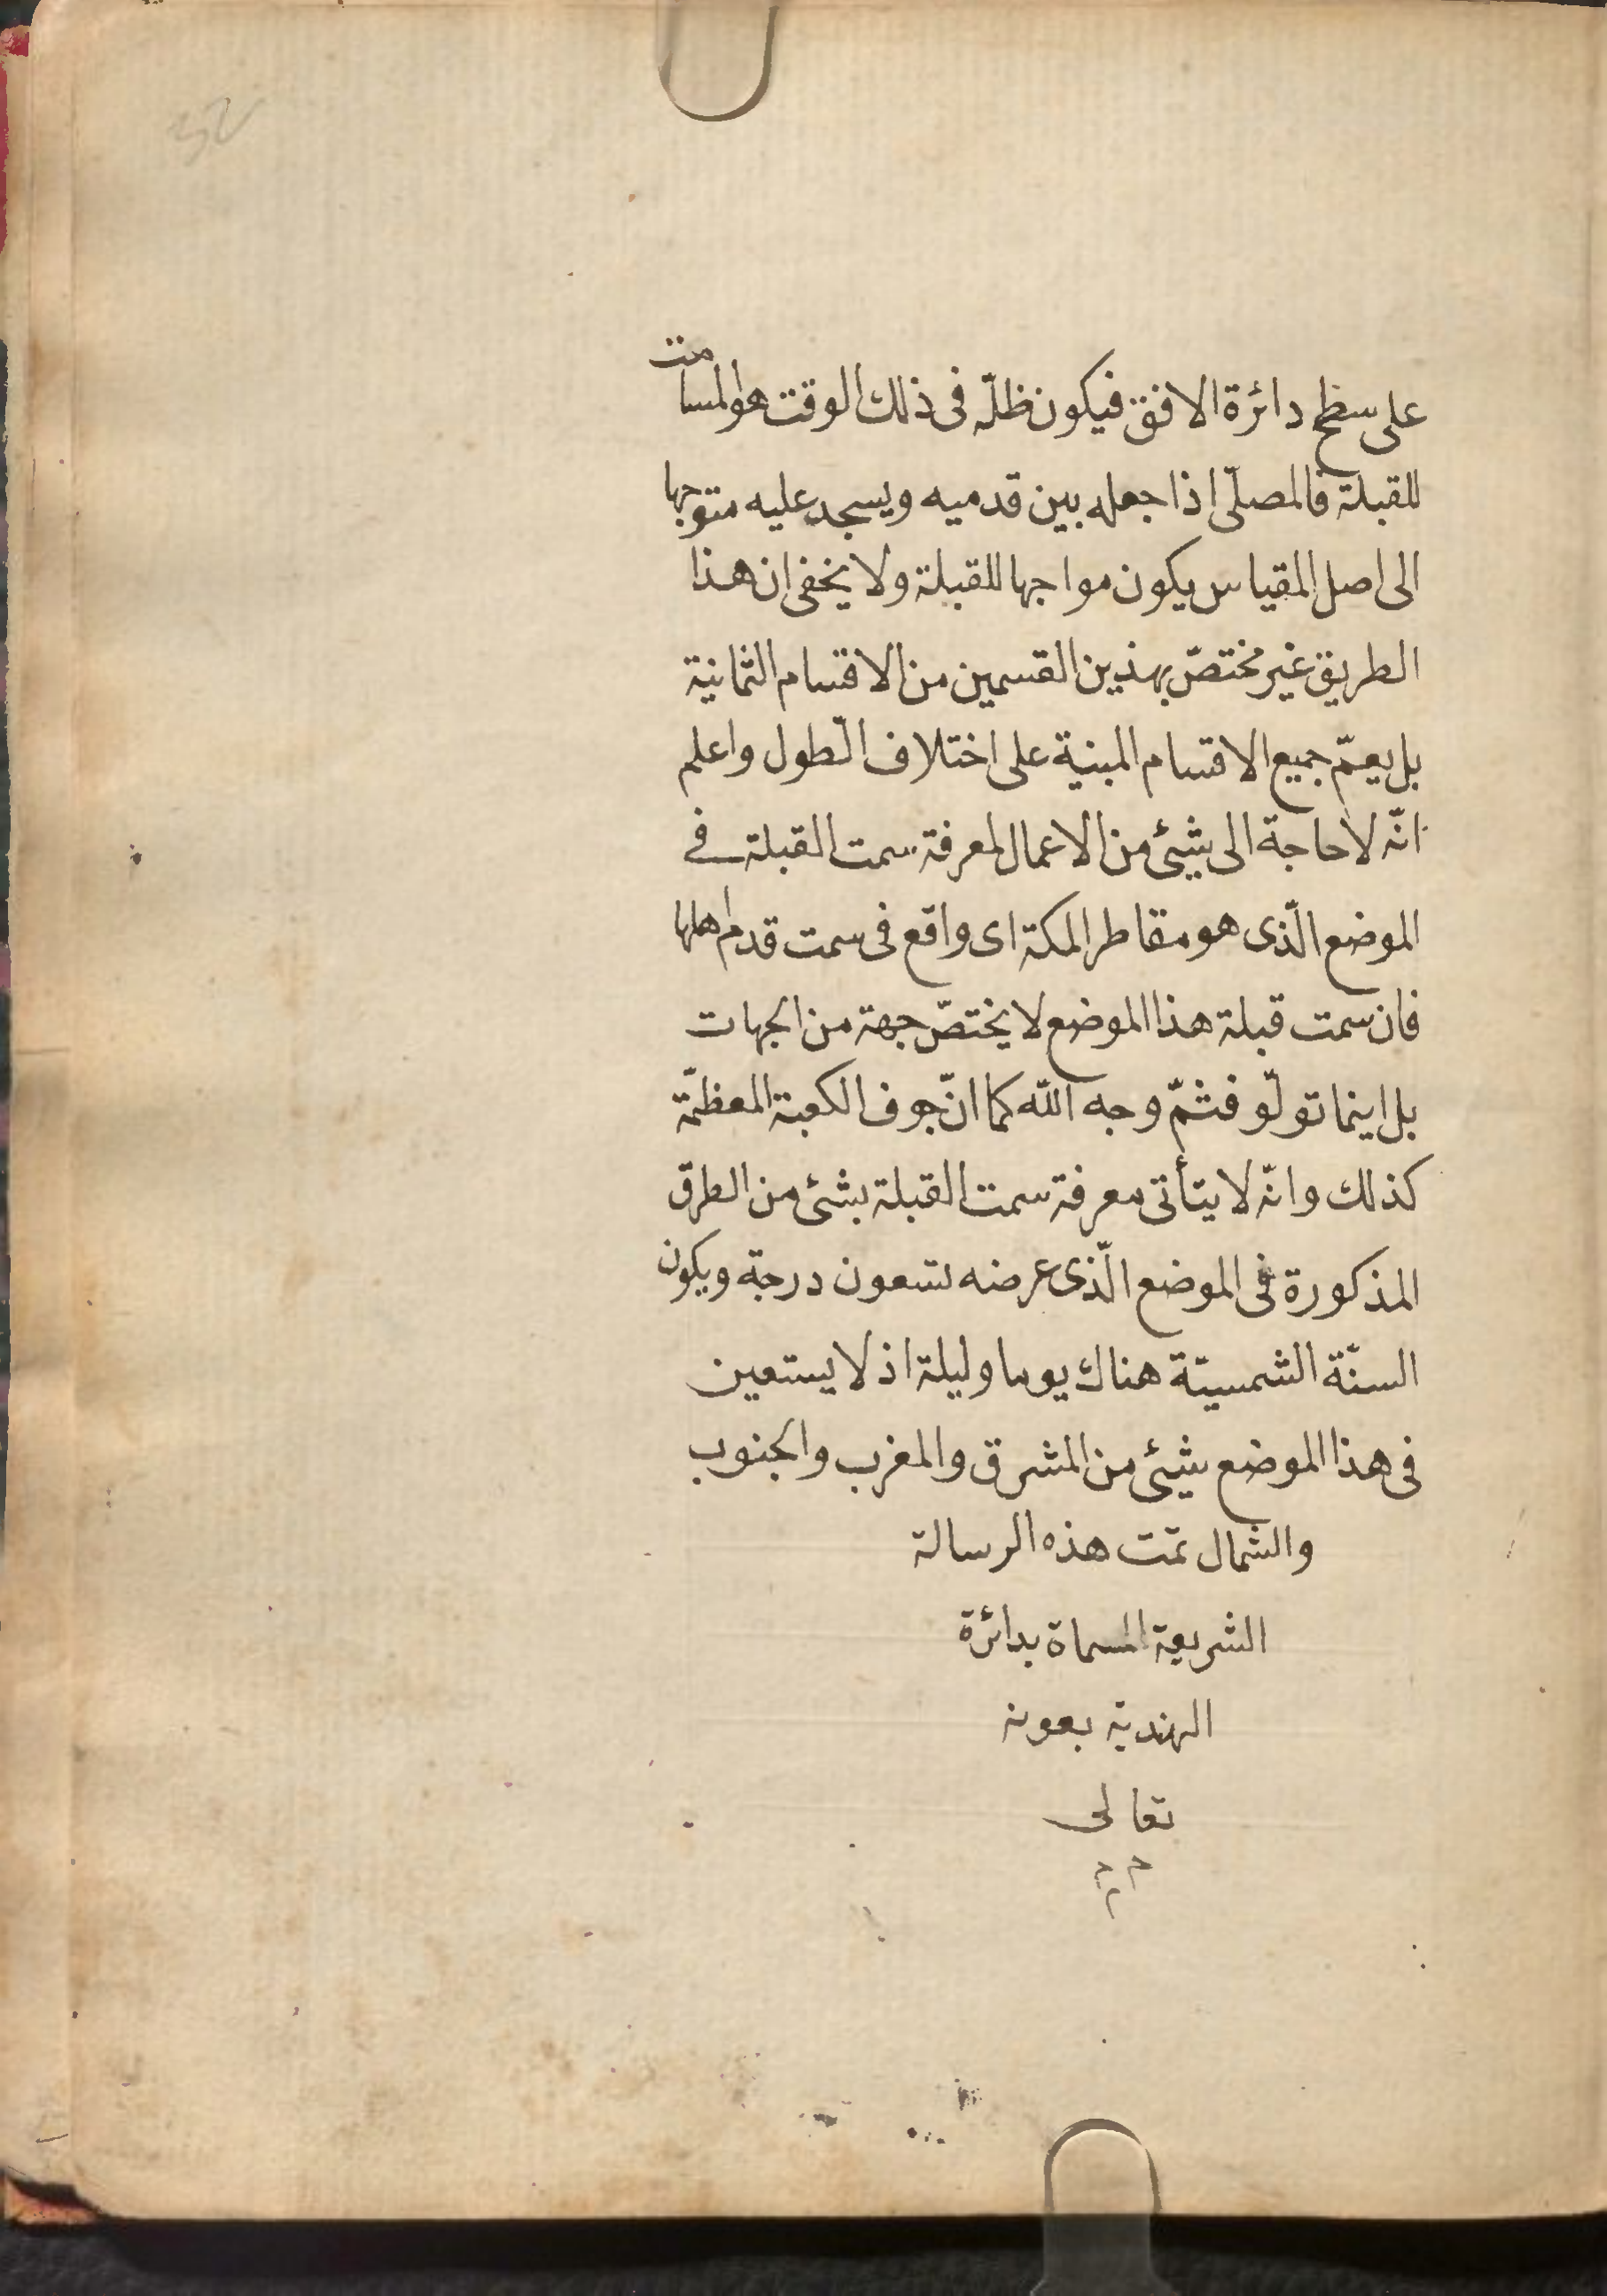 32
على سطح دائرة الافق فيكون ظلّه فى ذلك الوقت هو المسامت
للقبلة فالمصلّى اذا جعله بين قدميه ويسجد عليه متوجها
الى اصل المقياس يكون مواجها للقبلة ولا يخفى ان هذا
الطريق غير مختصّ بهذين القسمين من الاقسام الثمانية
بل يعمّ جميع الاقسام المبنية على اختلاف الطول واعلم
انّه لا حاجة الى شيئ من الاعمال لمعرفة سمت القبلة فے
الموضع الّذى هو مقاطر المكة اى واقع فى سمت قدم اهلها
فان سمت قبلة هذا الموضع لا يختصّ جهة من الجهات
بل اينما تولّو فثمّ وجه اللّه كما انّ جوف الكعبة المعظمّة
كذلك وانّه لا يتأتى معرفة سمت القبلة بشئ من الطرق
المذكورة فى الموضع الّذى عرضه تسعون درجة ويكون
السنّة الشمسيّة هناك يوما وليلة اذ لا يستعين
فى هذا الموضع شيئ من المشرق والمغرب والجنوب
والشمال تمّت هذه الرسالة
الشريعة المسماة بدائرة
الهندية بعونه
تعالى
م م م